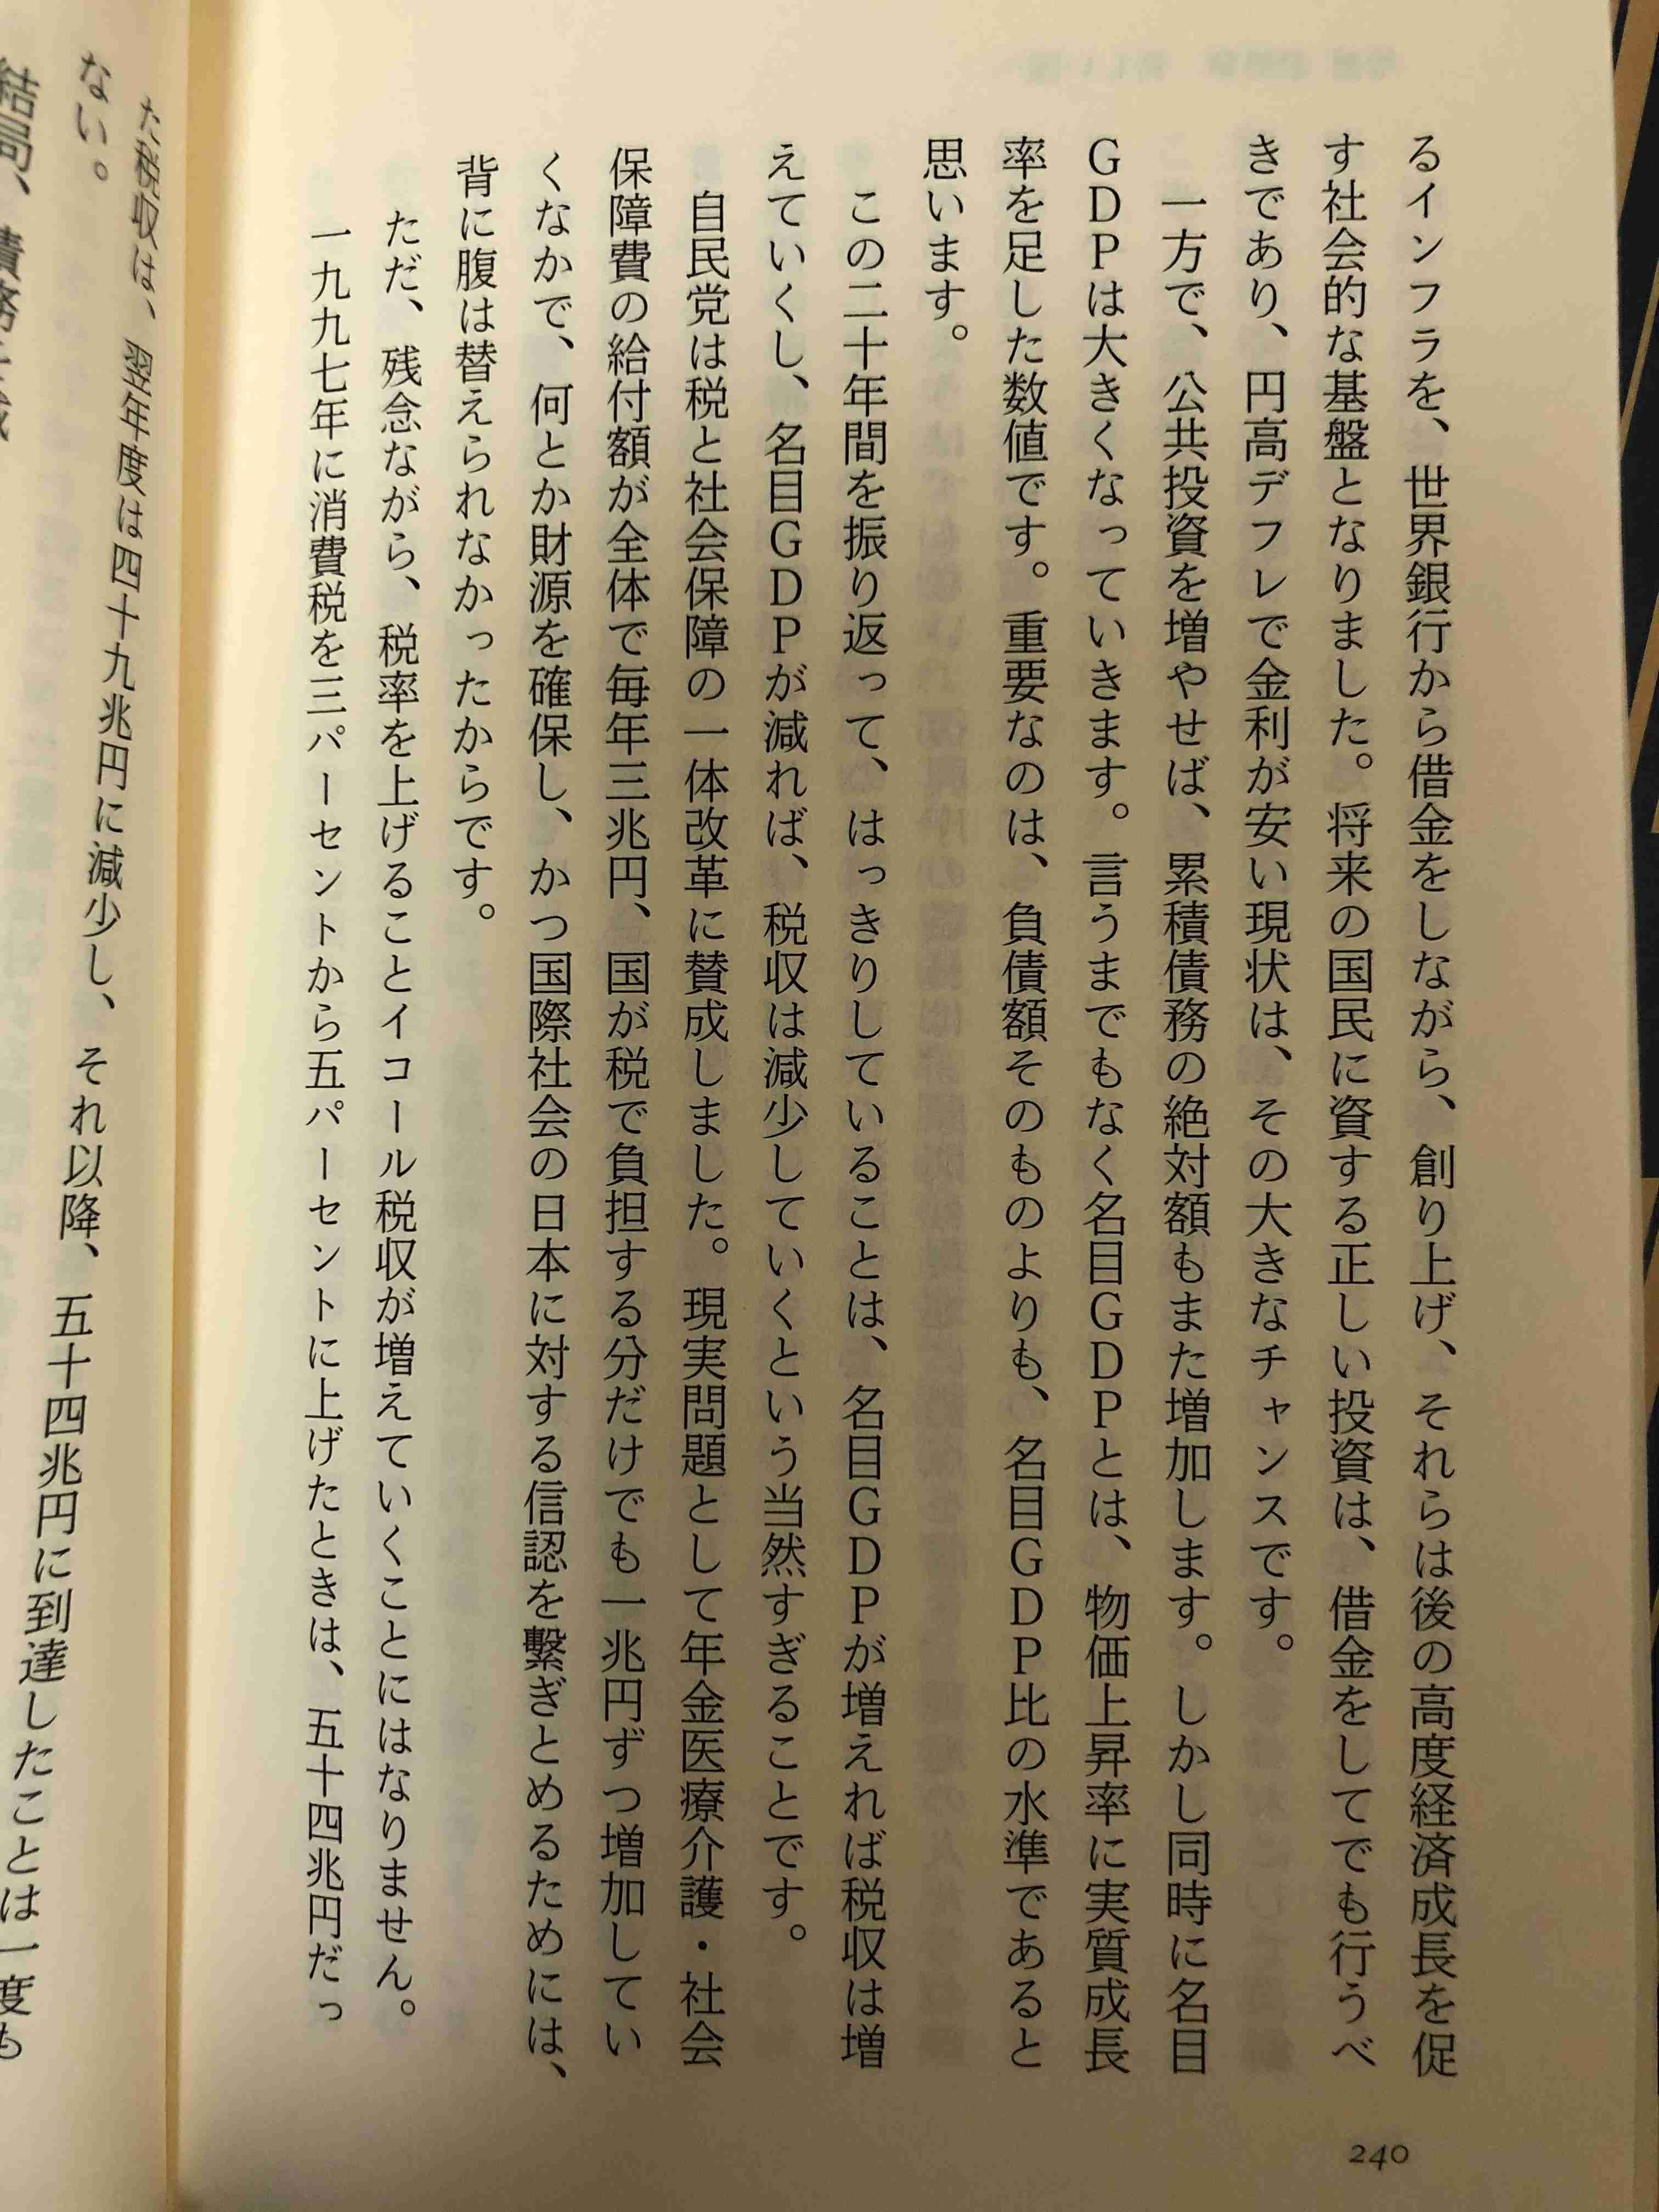 るインフラを、世界銀行から借金をしながら、創り上げ、それらは後の高度経済成長を促
す社会的な基盤となりました。将来の国民に資する正しい投資は、借金をしてでも行うべ
きであり、円高デフレで金利が安い現状は、その大きなチャンスです。
一方で、公共投資を増やせば、累積債務の絶対額もまた増加します。しかし同時に名目
GDPは大きくなっていきます。言うまでもなく名目GDPとは、物価上昇率に実質成長
率を足した数値です。重要なのは、負債額そのものよりも、名目GDP比の水準であると
思います。
この二十年間を振り返って、はっきりしていることは、名目GDPが増えれば税収は増
えていくし、名目GDPが減れば、税収は減少していくという当然すぎることです。
自民党は税と社会保障の一体改革に賛成しました。現実問題として年金医療介護・社会
保障費の給付額が全体で毎年三兆円、国が税で負担する分だけでも一兆円ずつ増加してい
くなかで、何とか財源を確保し、かつ国際社会の日本に対する信認を繫ぎとめるためには、
背に腹は替えられなかったからです。
ただ、残念ながら、税率を上げることイコール税収が増えていくことにはなりません。
一九九七年に消費税を三パーセントから五パーセントに上げたときは、五十四兆円だっ
240
た税収は、翌年度は四十九兆円に減少し、それ以降、五十四兆円に到達したことは一度も
ない。
結局、債務を